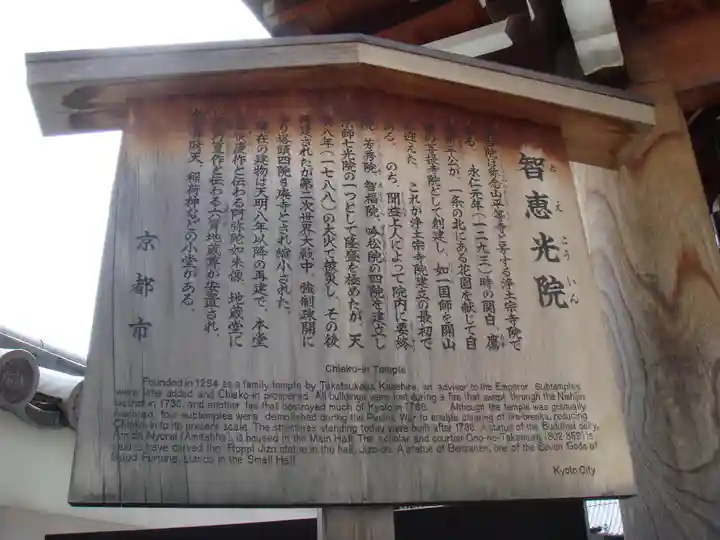 智恵光院
ちえこういん
院は称念山平等寺と号する浄土宗寺院で
ある。永仁元年(一二九三)時の関白、鷹
公が、一条の北にある花園を献じて自
の菩提寺院として創建し、如一国師を開山
迎えた。これが浄土宗寺院建立の最初で
ある。のち、開基上人によって院内に
院、芳秀院、智福院、吟松院の四院を建立し
師七光院の一つとして隆盛を極めたが、天
八年(一七八八)の大火で被災し、その後
建されたが第二次世界大戦中、強制疎開に
り塔頭四院も廃寺とされ縮小された。
在の建物は天明八年以降の再建で、本堂
快慶作と伝わる阿弥陀如来像、地蔵堂に
篁作と伝わる六臂地蔵尊が安置され、
財天、稲荷神などの小堂がある。
京都市
Chieko-in Temple
Founded in 1294 as a family temple by Takatsukasa Kanehira, an advisor to the Emperor. Subtemples
were later added and Chieko-in prospered. All buildings were lost during a fire that swept through the Nishijin
district in 1730, and another fire that destroyed much of Kyoto in 1788. Although the temple was gradually
restored, four subtemples were demolished during the Pacific War to enable clearing of fire-breaks, reducing
Chieko-in to its present scale. The structures standing today were built after 1788. A statue of the Buddhist deity,
Amida Nyorai (Amitabha), is housed in the Main Hall. The scholar and courtier Ono-no-Takamura (802-852) is
said to have carved the Roppi Jizo statue in the hall, Jizo-do. A statue of Benzaiten, one of the Seven Gods of
Good Fortune, stands in the Small Hall.
Kyoto City